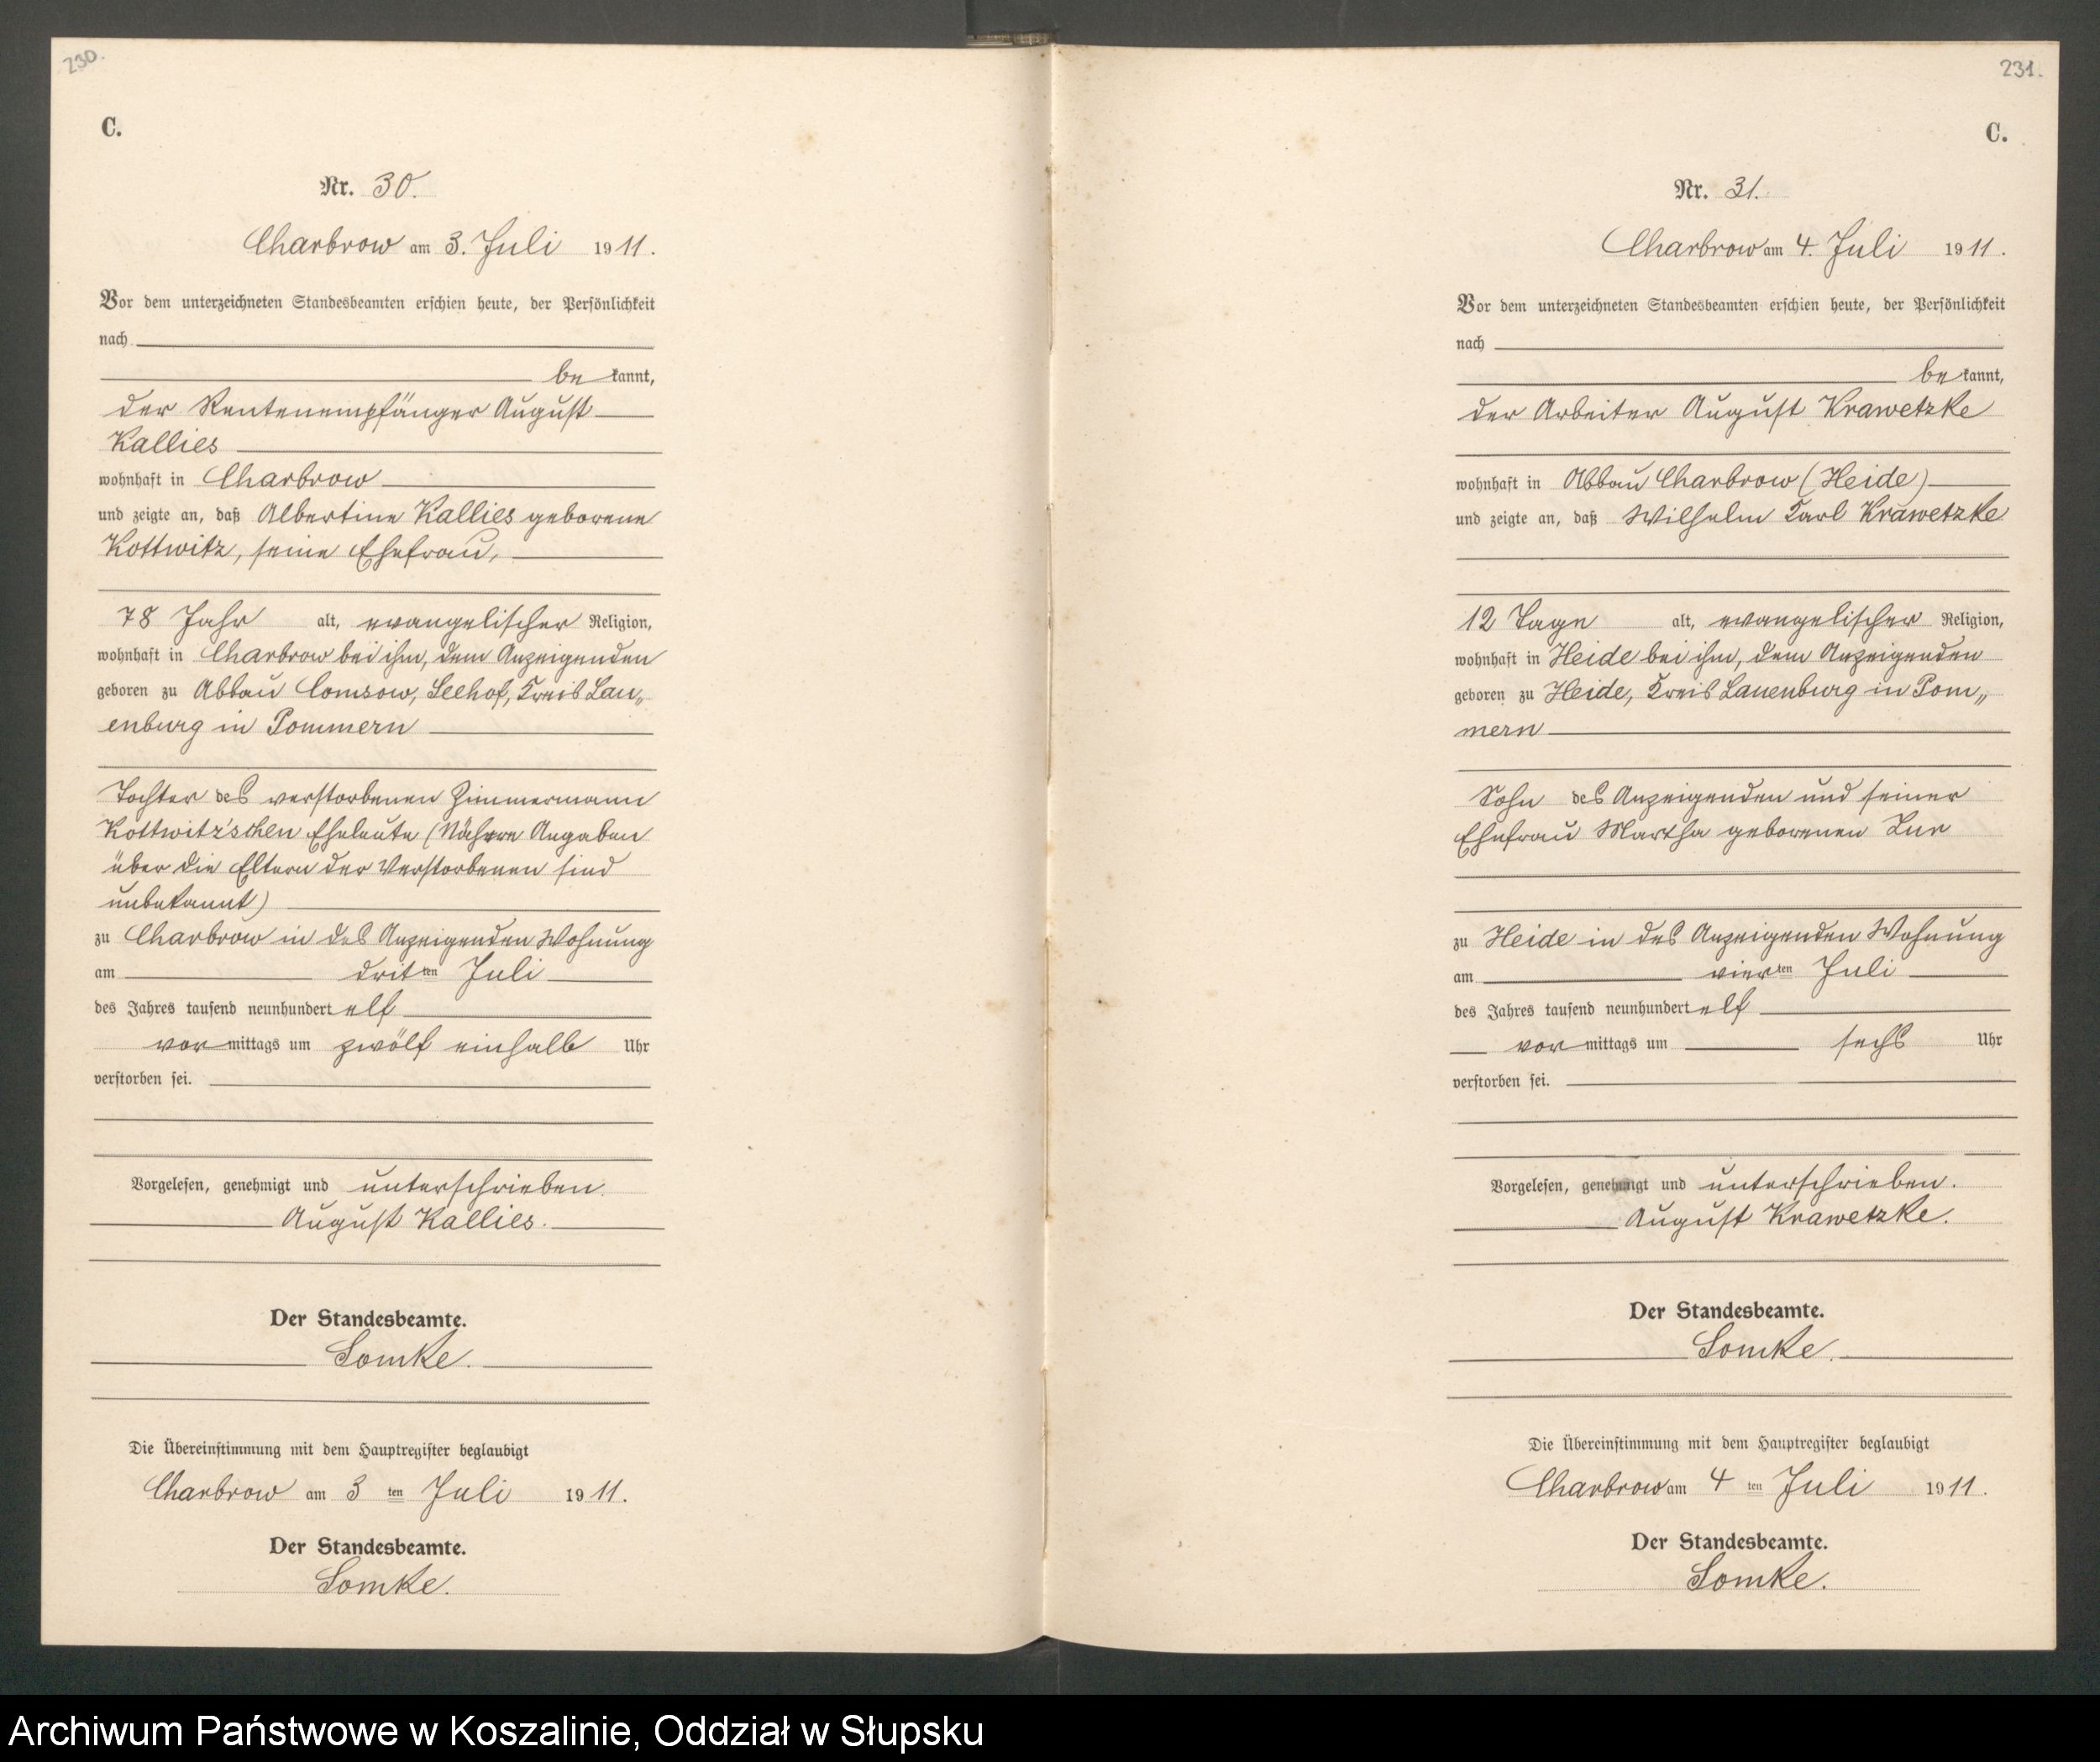 230.
C.
Nr. 30.
Charbrow am 3. Juli 1911.
Vor dem unterzeichneten Standesbeamten erschien heute, der Persönlichkeit
nach
be kannt,
der Rentenempfänger August
Kallies
wohnhaft in Charbrow
und zeigte an, daß Albertine Kallies geborene
Kottwitz, seine Ehefrau,
78 Jahr alt, evangelischer Religion,
wohnhaft in Charbrow bei ihm, dem Anzeigenden
geboren zu Abbau Comsow, Seehof, Kreis Lau„
enburg in Pommern
Tochter des verstorbenen Zimmermann
Kottwitz'schen Eheleute (Nähere Angaben
über die Eltern der Verstorbenen sind
unbekannt)
zu Charbrow in des Anzeigenden Wohnung
am dritten Juli
des Jahres tausend neunhundert elf
vormittags um zwölf einhalb Uhr
verstorben sei.
Vorgelesen, genehmigt und unterschrieben.
August Kallies.
Der Standesbeamte.
Lomke.
Die Übereinstimmung mit dem Hauptregister beglaubigt
Charbrow am 3 ten Juli 1911.
Der Standesbeamte.
Lomke.
231.
C.
Nr. 31.
Charbrow am 4. Juli 1911.
Vor dem unterzeichneten Standesbeamten erschien heute, der Persönlichkeit
nach
be kannt,
der Arbeiter August Krawetzke
wohnhaft in Abbau Charbrow (Heide)
und zeigte an, daß Wilhelm Karl Krawetzke
12 Tage alt, evangelischer Religion,
wohnhaft in Heide bei ihm, dem Anzeigenden
geboren zu Heide, Kreis Lauenburg in Pom„
mern
Sohn des Anzeigenden und seiner
Ehefrau Martha geborenen
zu Heide in des Anzeigenden Wohnung
am vierten Juli
des Jahres tausend neunhundert elf
vormittags um sechs Uhr
verstorben sei.
Vorgelesen, genehmigt und unterschrieben.
August Krawetzke.
Der Standesbeamte.
Lomke.
Die Übereinstimmung mit dem Hauptregister beglaubigt
Charbrow am 4 ten Juli 1911.
Der Standesbeamte.
Lomke.
Archiwum Państwowe w Koszalinie, Oddział w Słupsku